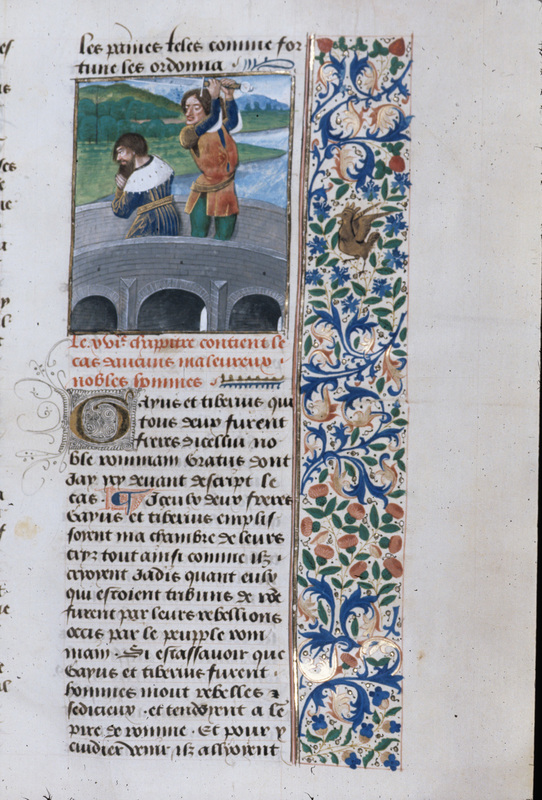 les paines teles comme for
tune les ordonna
Le xvie chapitre contient le
cas daucuns maleureux
nobles hommes
Gayus et tiberius qui
tous deux furent
freres dicellui no
ble rommain Gratus dont
Jay cy devant descript le
cas Jceulx deux freres
Gayus et tiberius emplis
soyent ma chambre de leurs
crys tout ainsi comme ilz
crioyent Jadis quant eulx
qui estoient tribuns de rome
furent par leurs rebellions
occis par le peuple rom
main Si estassavoir que
Gayus et tiberius furent
hommes moult rebelles z
sedicieux et tendoyent a lem
pire de romme Et pour y
cuidier venir ilz assoyent